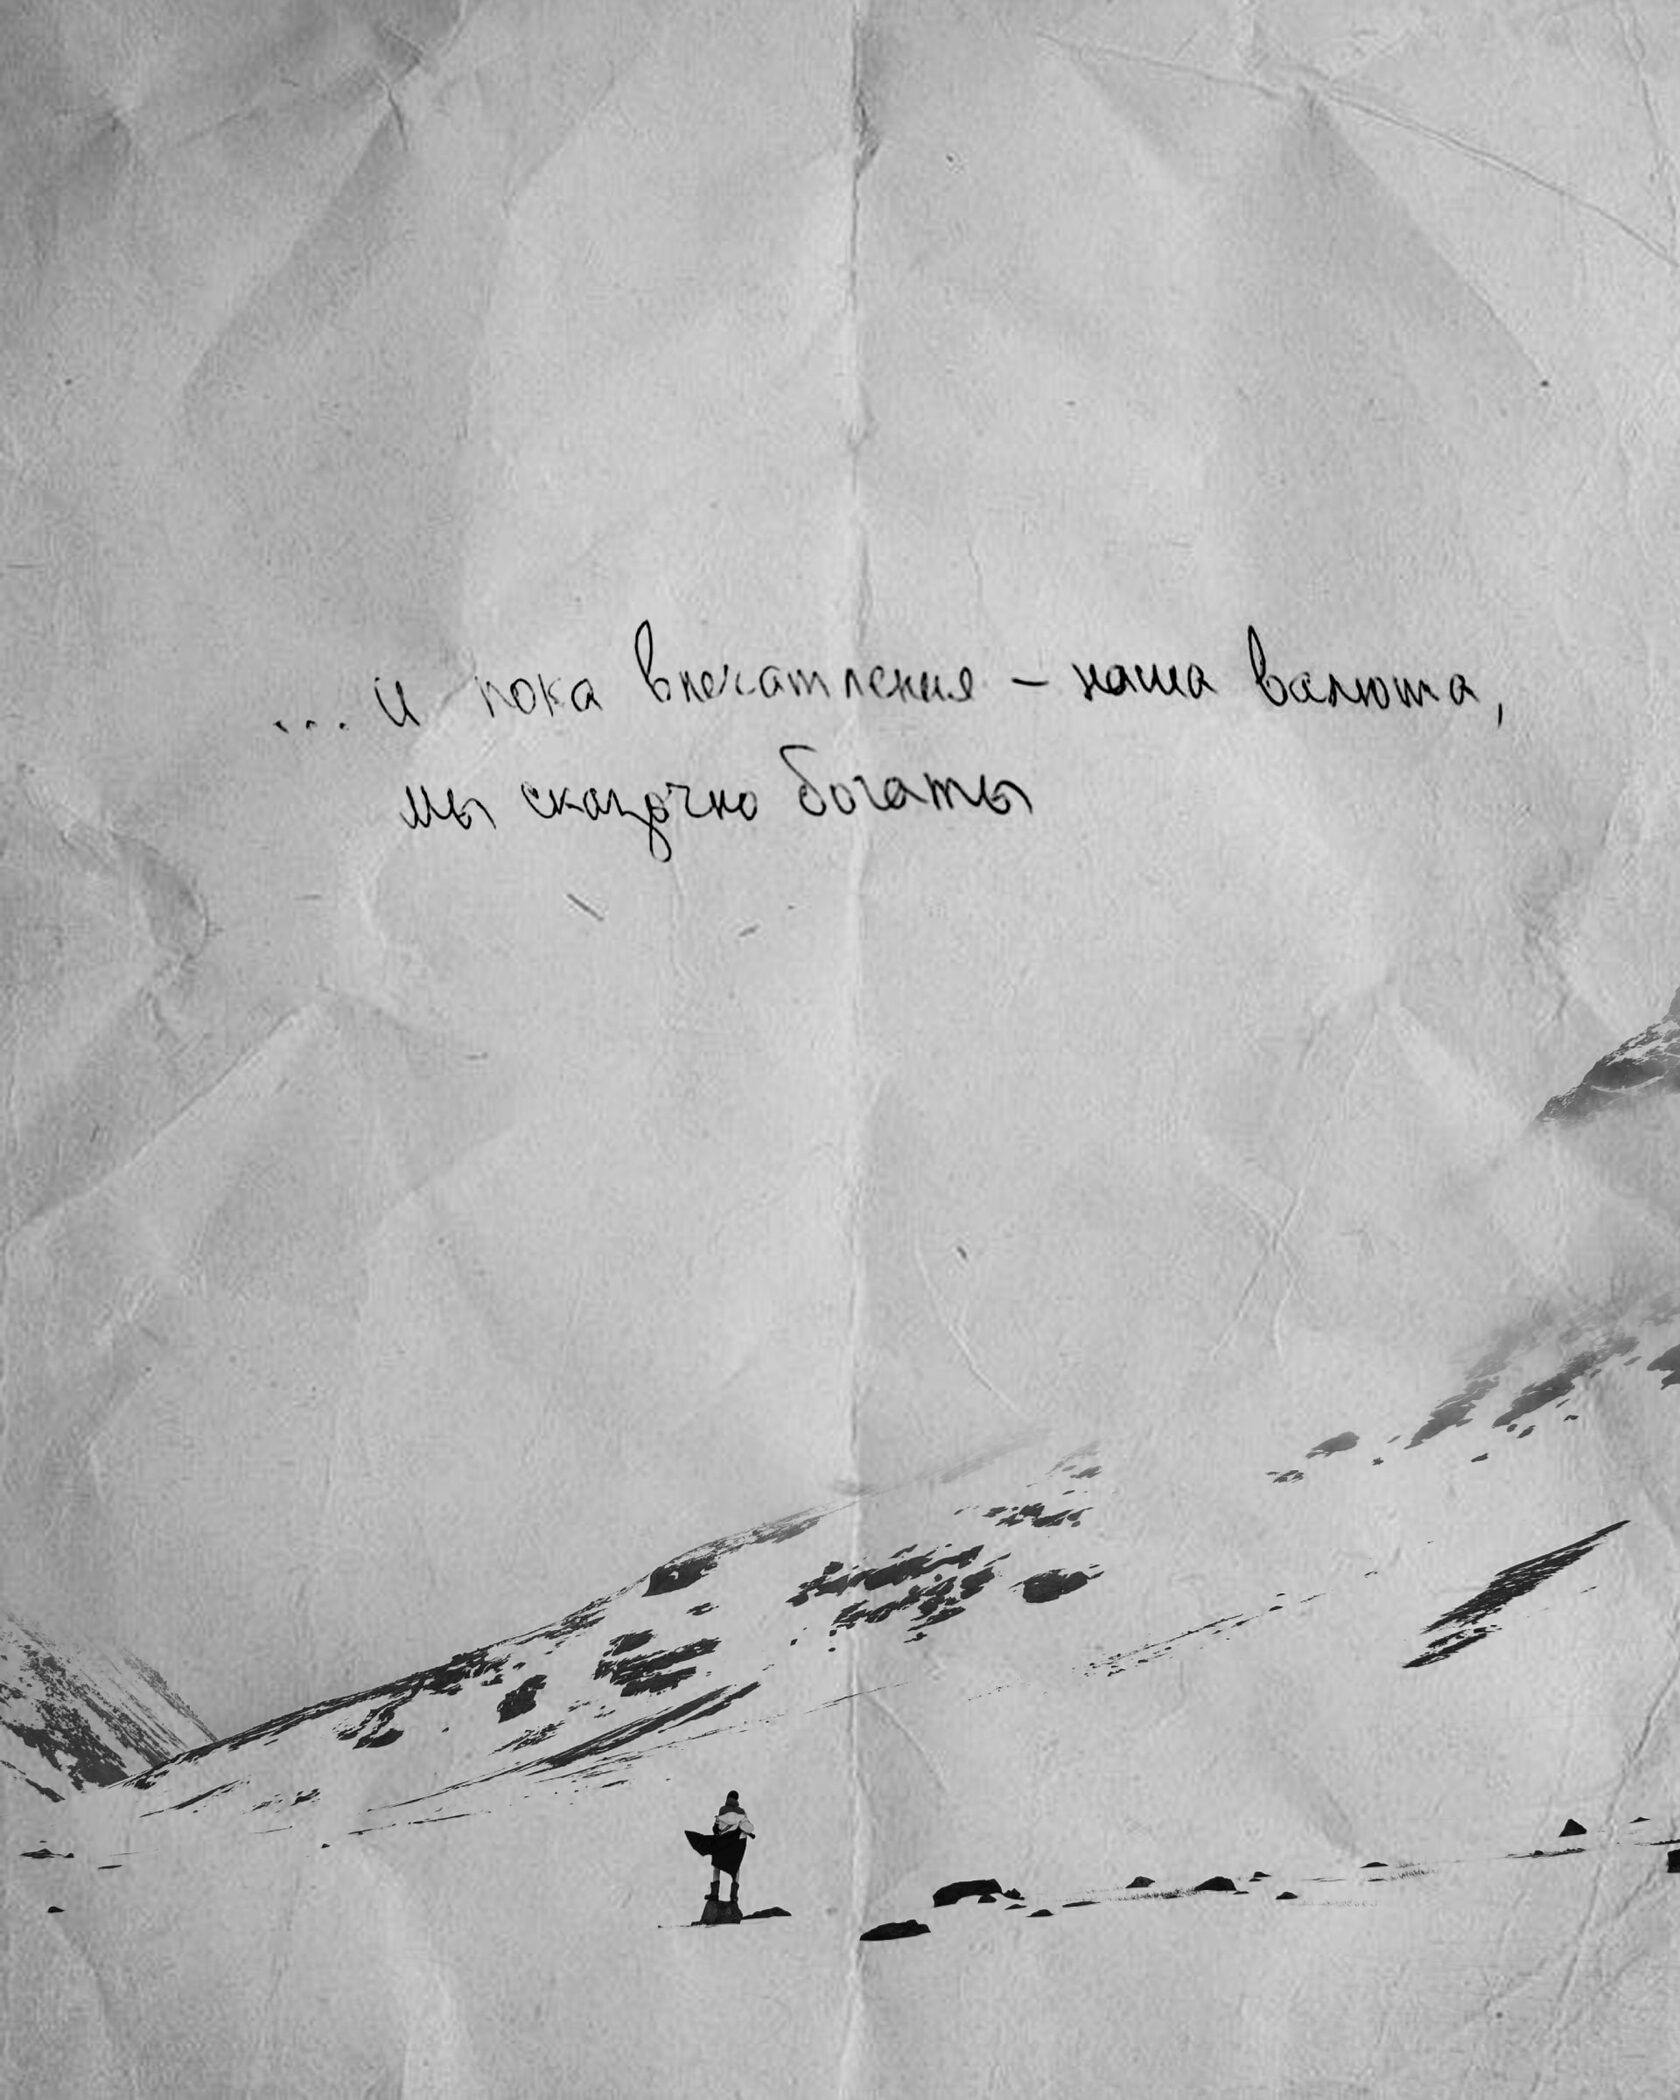 ... и пока впечатления – наша валюта,
мы сказочно богаты